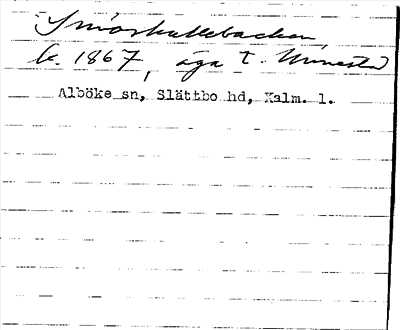 Smörkullebacken,
k. 1867, äga t. Munesta
Alböke sn, Slättbo hd, Kalm. l.